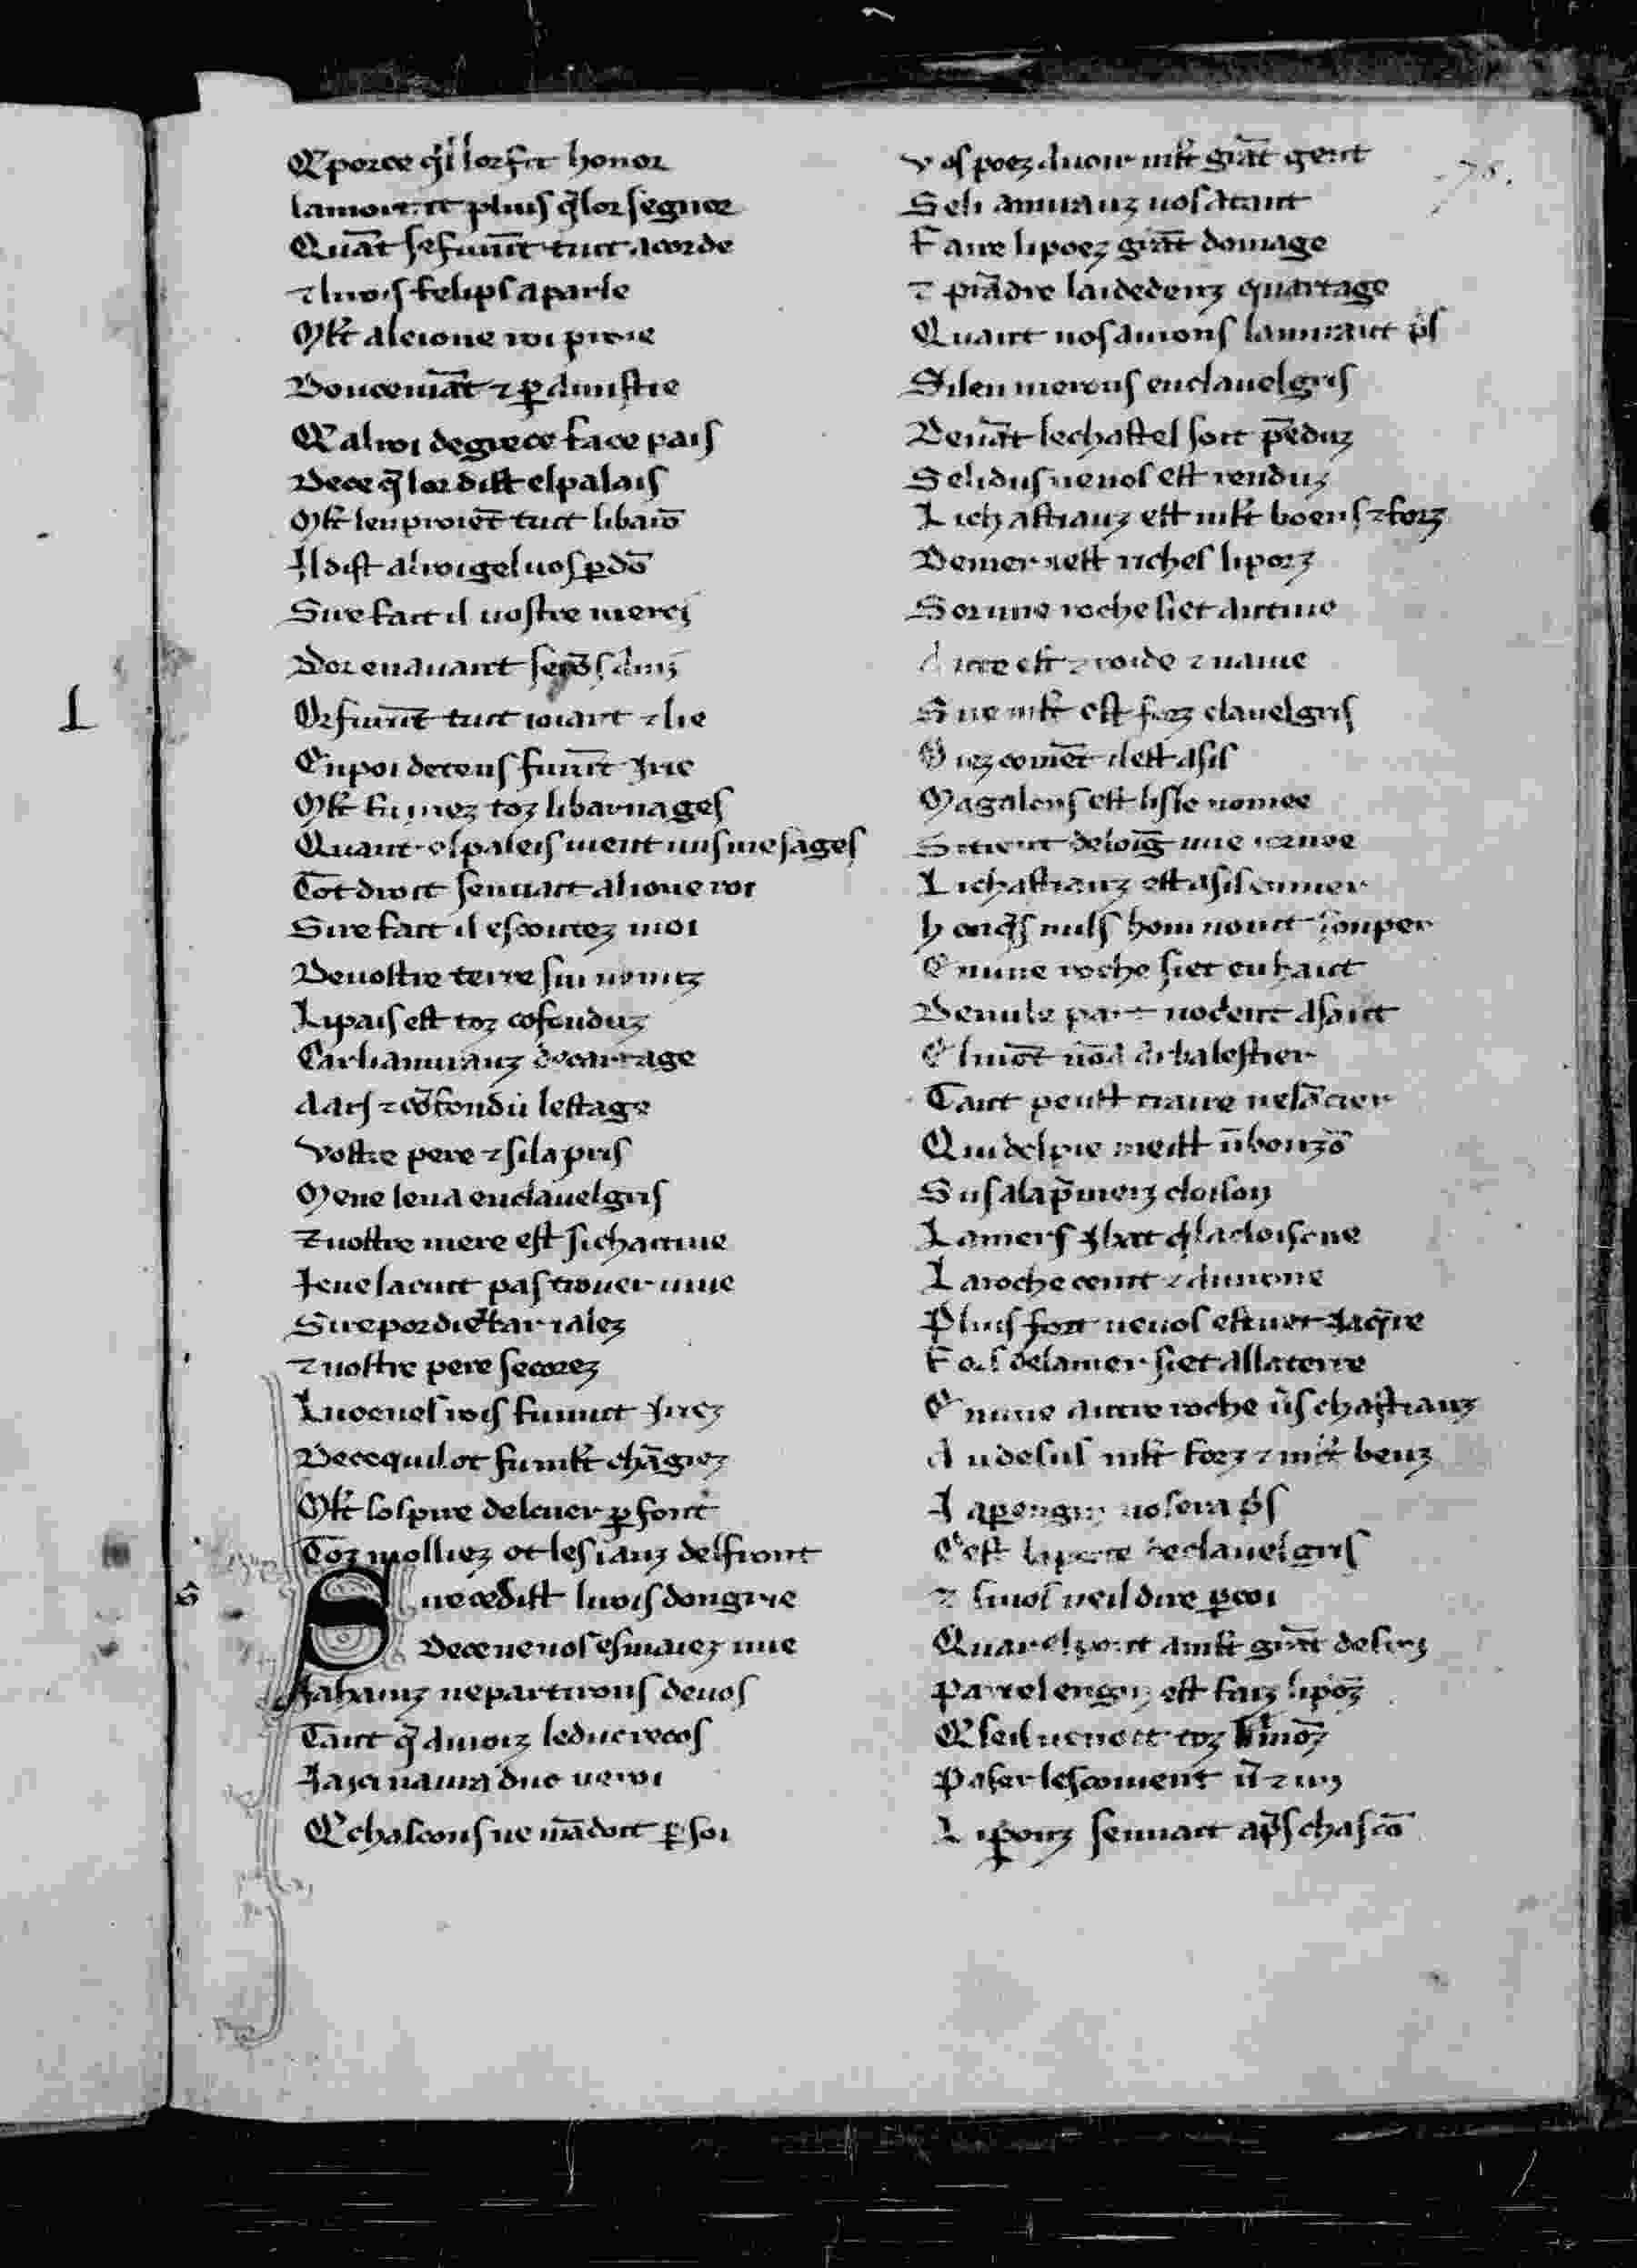 E por ce q̃l lor fit honor
lamoit et plus q̃ lor segnor
Quãt se furẽt tuit acorde
⁊ luois felips a parle
Ml't al eione roi prie
Doucemãt ⁊ ꝑ amistie
Q'al roi de grece face pais
De ce q̃ lor dist el palais
Ml't len proiẽt tuit li barõ
Il dist al roi gel uos ꝑdõ
Sire fait il uostre merci
Dor en auant serõs ami
Or furẽt tuit ioiant ⁊ lie
En poi de tens furẽt irie
Ml't fu iriez toz li barnages
Quant el paleis uient uns mesages
Tot droit sen uait al ioue roi
Sire fait il escoutez moi
De uostre terre sui uenuz
Li pais est toz cōfonduz
Car li amiranz de cartage
A ars ⁊ cõfondu lestage
Vostre pere ⁊ si la pris
Mene len a en clauelgris
⁊ uostre mere est si chaitiue
Ie ne la cuit pas trouer uiue
Sire por die tart i alez
⁊ uostre pere secorez
Li ioenes rois fu mult iriez
De ce quil ot fu ml't chãgiez
Ml't sospire del cuer ꝑfont
Toz molliez ot les iauz del front
Sire ce dist luois dongrie
De ce ne uos esmaiez mie
Ia hainz ne partirons de uos
Tant q̃ auroiz le duc recos
Ia ni naura duc ne roi
E chascons ne mãdoit ꝑ soi
Vos poez auoir ml't grãt gent
Se li amiranz uos atant
Faire li poez grãt domage
⁊ prãdre laidedenz quartage
Quant nos aurons lamirant p̃s
Silen merrons en clauelgris
Deuãt le chastel soit pẽduz
Se li dus ne uos est renduz
Li chastiauz est ml't boens ⁊ forz
De mer i est riches li porz
Sor une roche siet autiue
Aute est ⁊ roide ⁊ naiue
Sire ml't est forz clauelgris
Oiez comẽt il est asis
Magalons est lisle nomee
Si tient de loig̃ une iornee
Li chastiauz est asis en mer
Honq̃s nuls hom noit son per
En une roche siet en haut
De nule part ne dent asaut
El mõt nõ a arbalestier
Tant peust traire ne lãcier
Qui del pie meist ũ bonzõ
Sus a la p̃miere cloison
La mers i bat q̃ la cloisone
La roche ceint ⁊ auirone
Plus fort ne uos estuet i aq̃rre
Fors de la mer siet a la terre
En une autre roche ũs chastiauz
Au desus ml't forz ⁊ ml't beuz
Ia ꝑ engin no sera p̃s
Cest la porte de clauelgris
⁊ si uos ueil dire ꝑcoi
Quar el pont a ml't grãt desroi
Par tel engin est faiz li põz
E seil uenoit toz li mõz
Paser les couient ũ ⁊ un
Li ponz sen uait ap̃s chascõ
78.
s